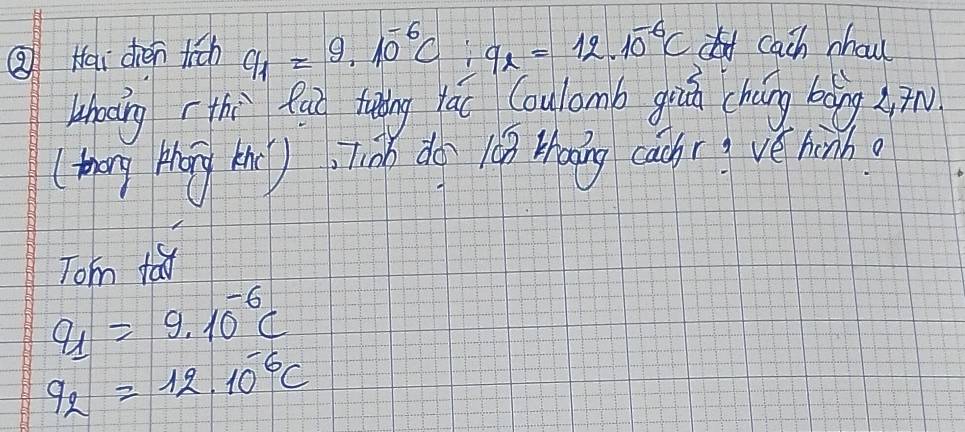 ② Hai điện tích q1 = 9.10⁻⁶C ; q2 = 12.10⁻⁶C đặt cách nhau
khoảng r thì lực tương tác Coulomb giữa chúng bằng 2,7N.
(trong không khí). Tính độ lớn khoảng cách r ? vẽ hình ?
Tóm tắt
q1 = 9.10⁻⁶C
q2 = 12.10⁻⁶C